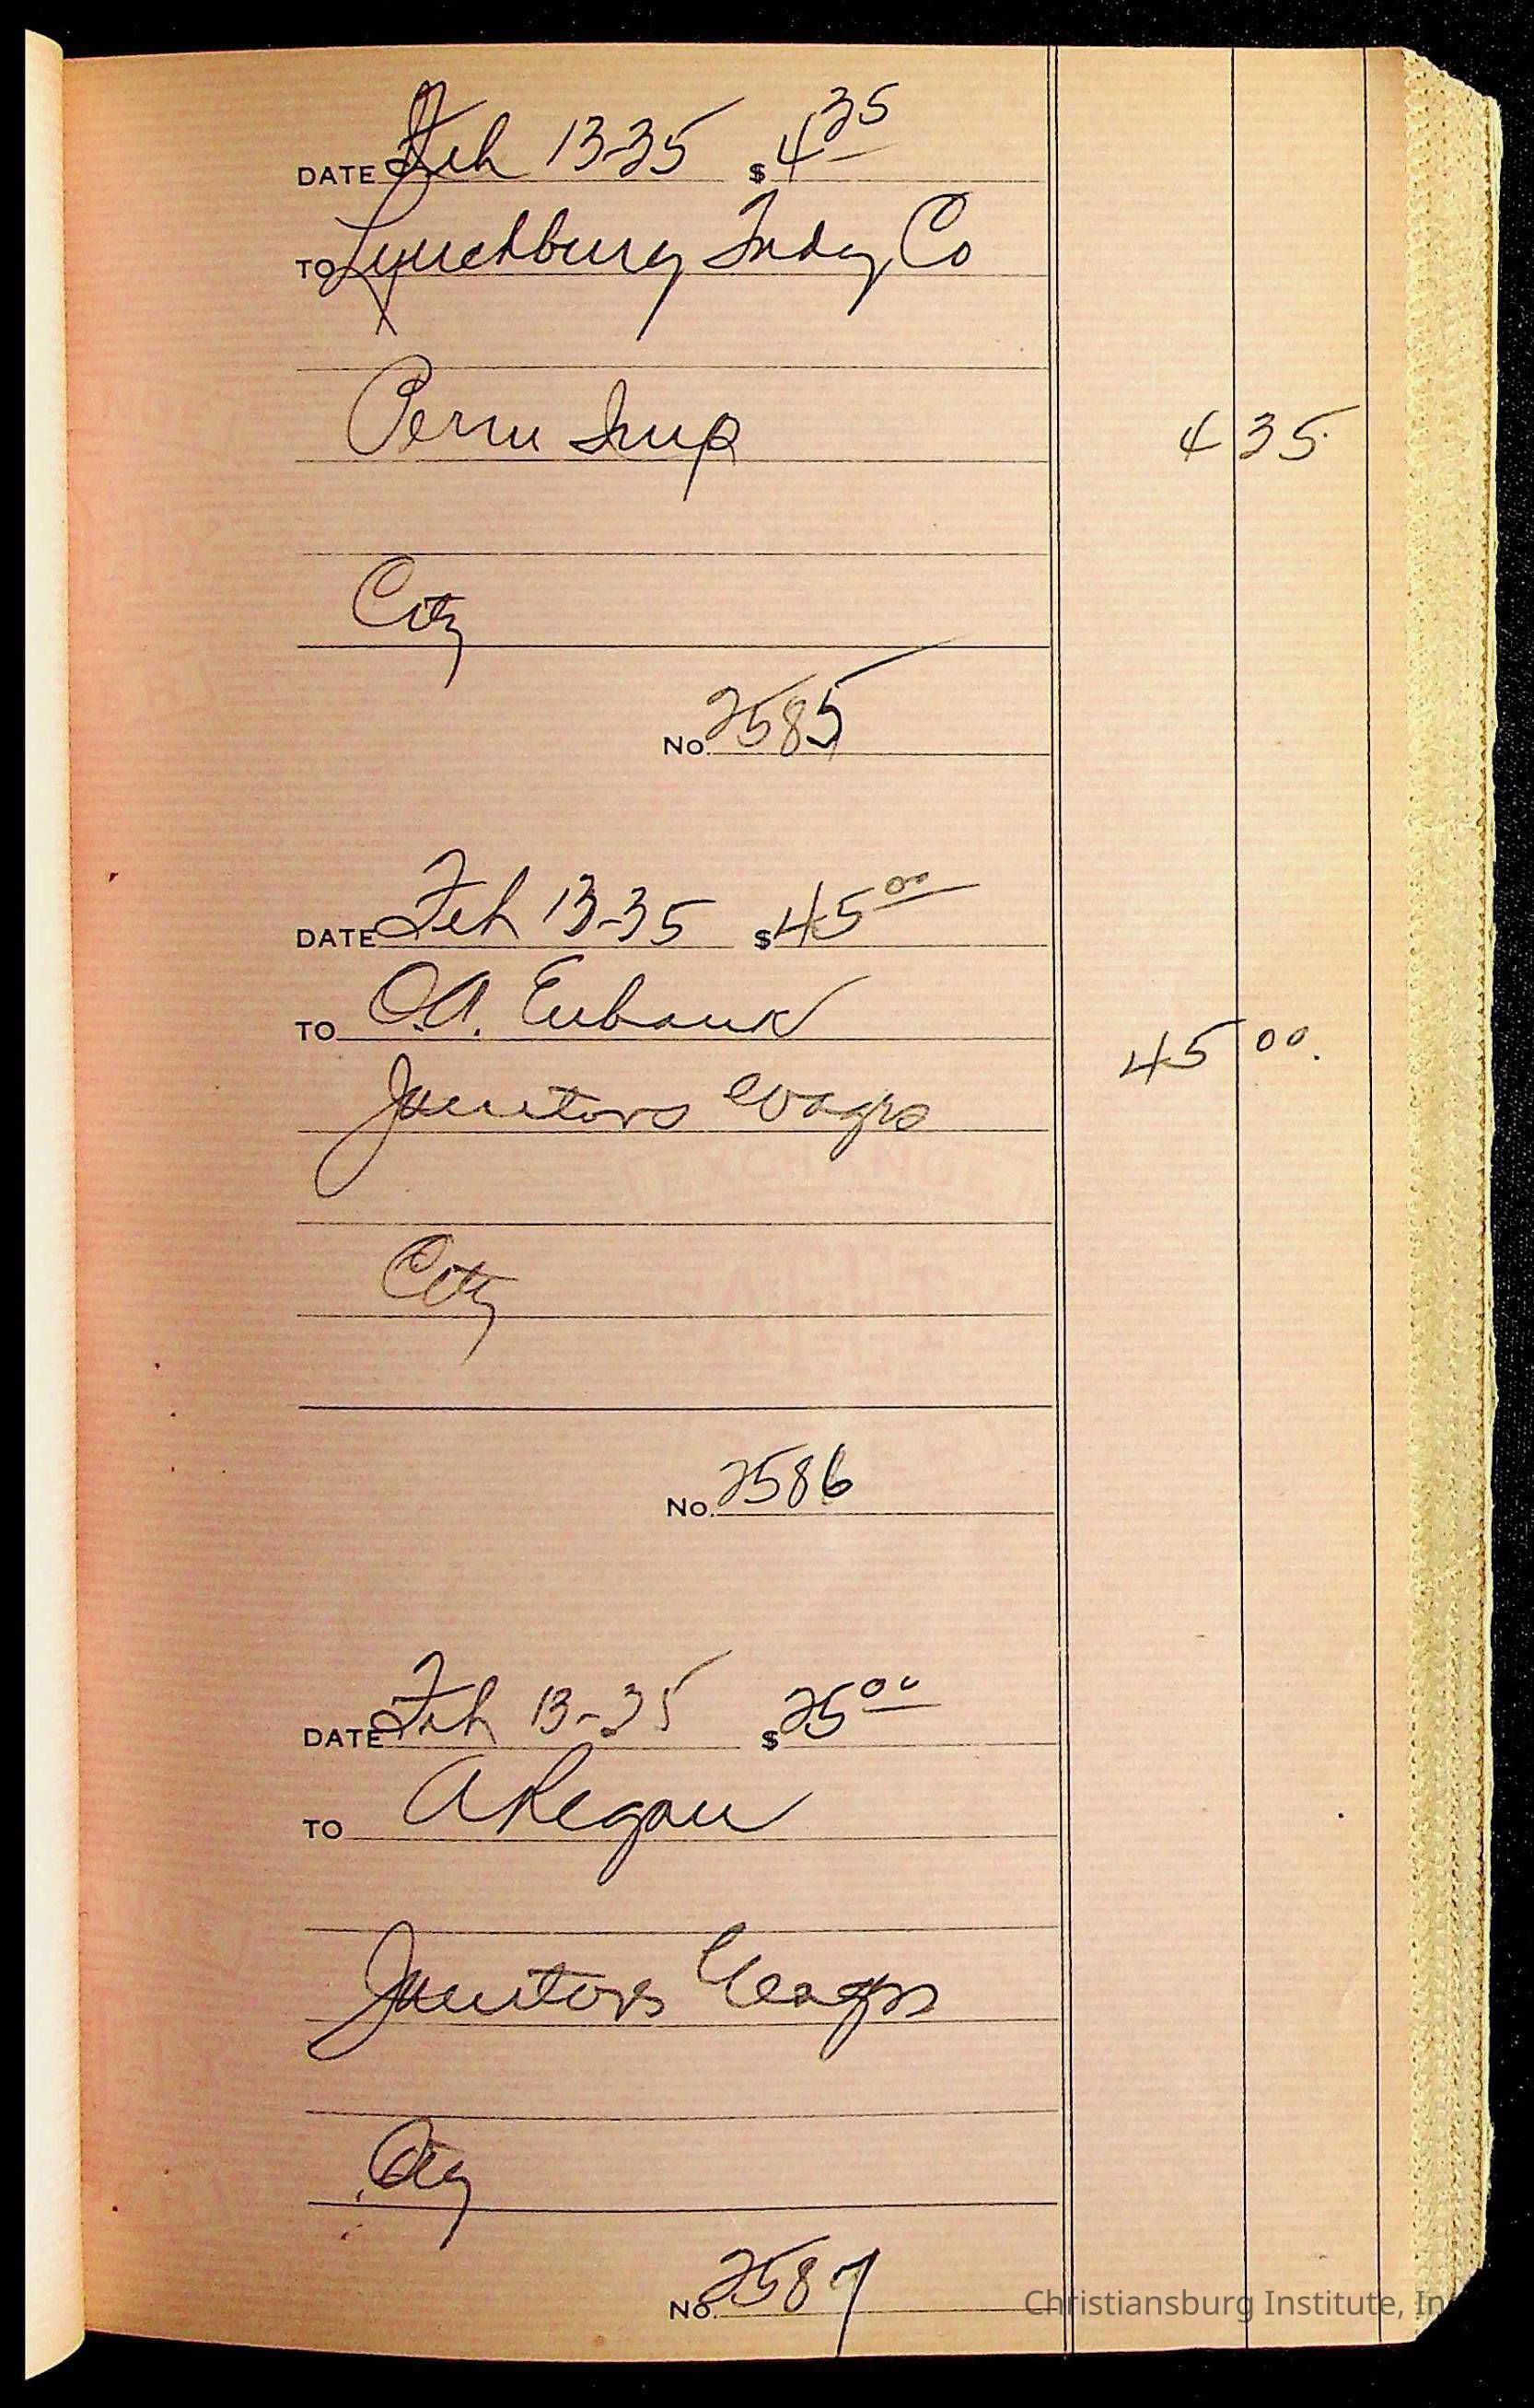 DATE Feb 13-35 $4 35
TO Lynchburg Fndy, Co
Perm Imp 4 35
City
No. 2585
DATE Feb 13-35 $45 00
TO O.A. Eubank
Janitors Wages 45 00
City
No. 2586
DATE Feb 13-35 $25 00
TO A Regan
Janitors Wages
City
No. 2587
Christiansburg Institute, In